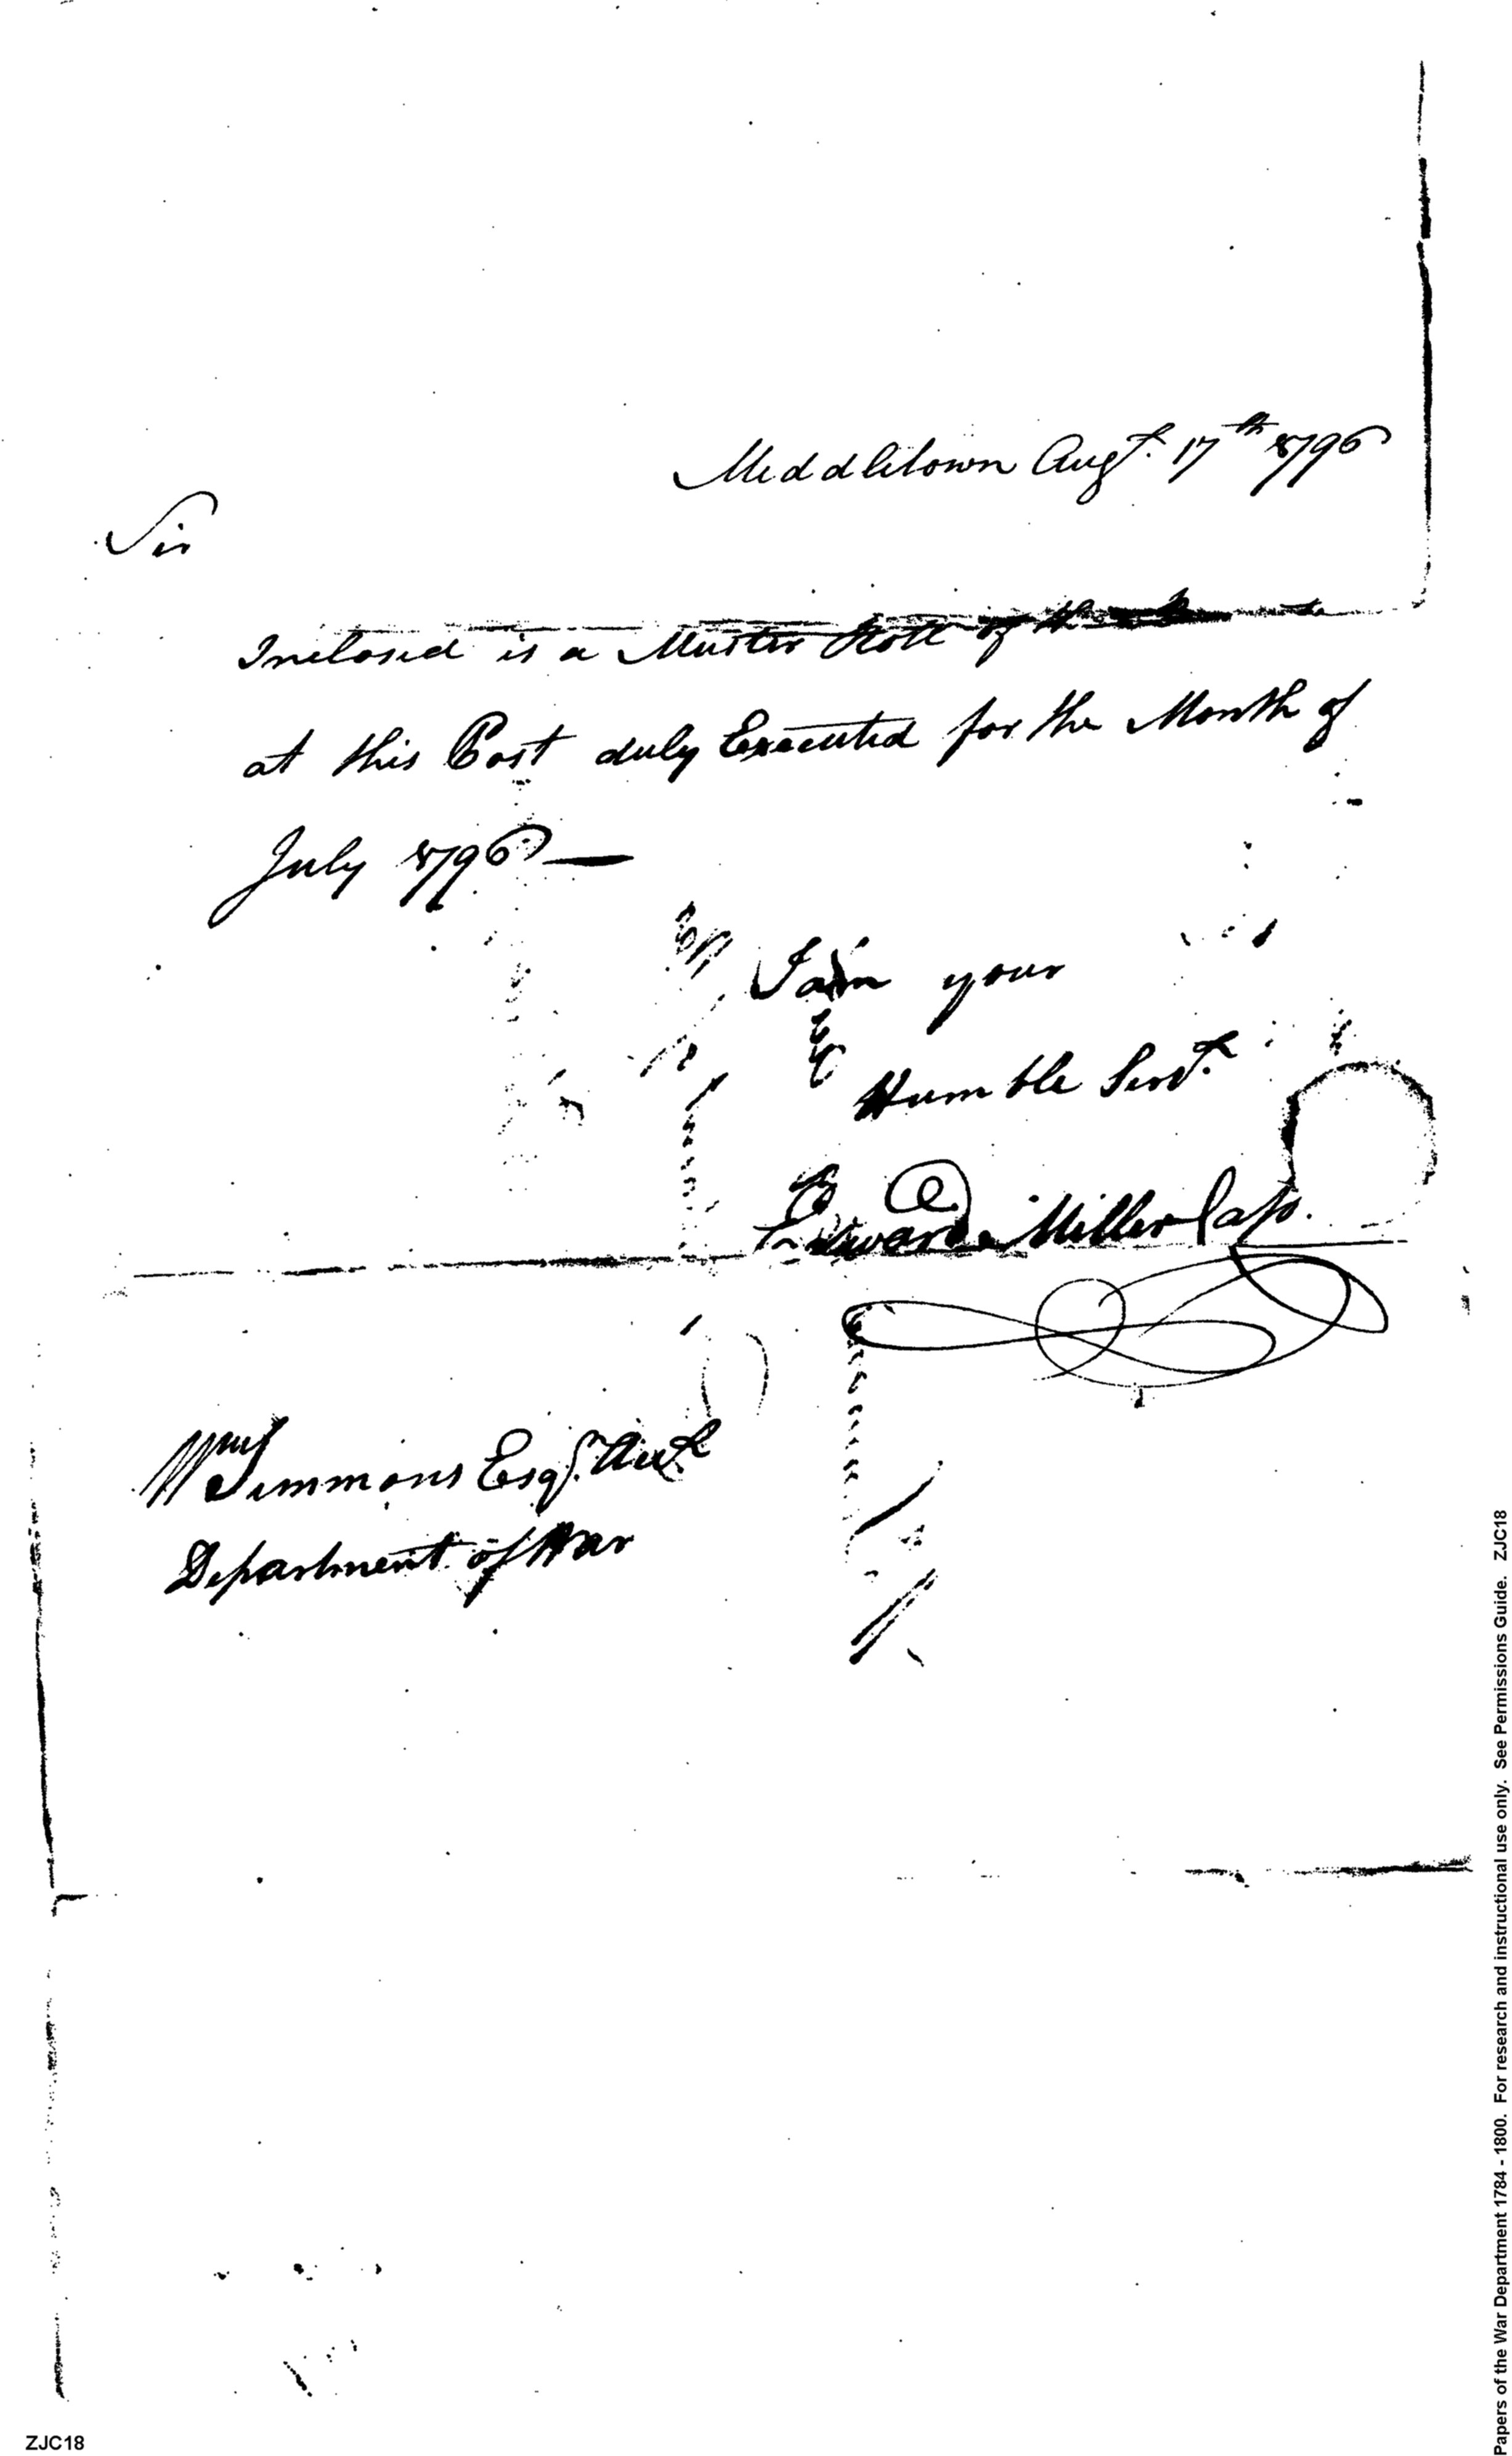 Middletown Augt. 17th 1796
Sir
Inclosed is a Muster Roll of the
at this Post duly Executed for the Month of
July 1796 —
I am your
Humble Servt.
Edward Miller Capt.
Wm Simmons Esqr. Acct
Department of War
ZJC18
Papers of the War Department 1784 - 1800. For research and instructional use only. See Permissions Guide. ZJC18